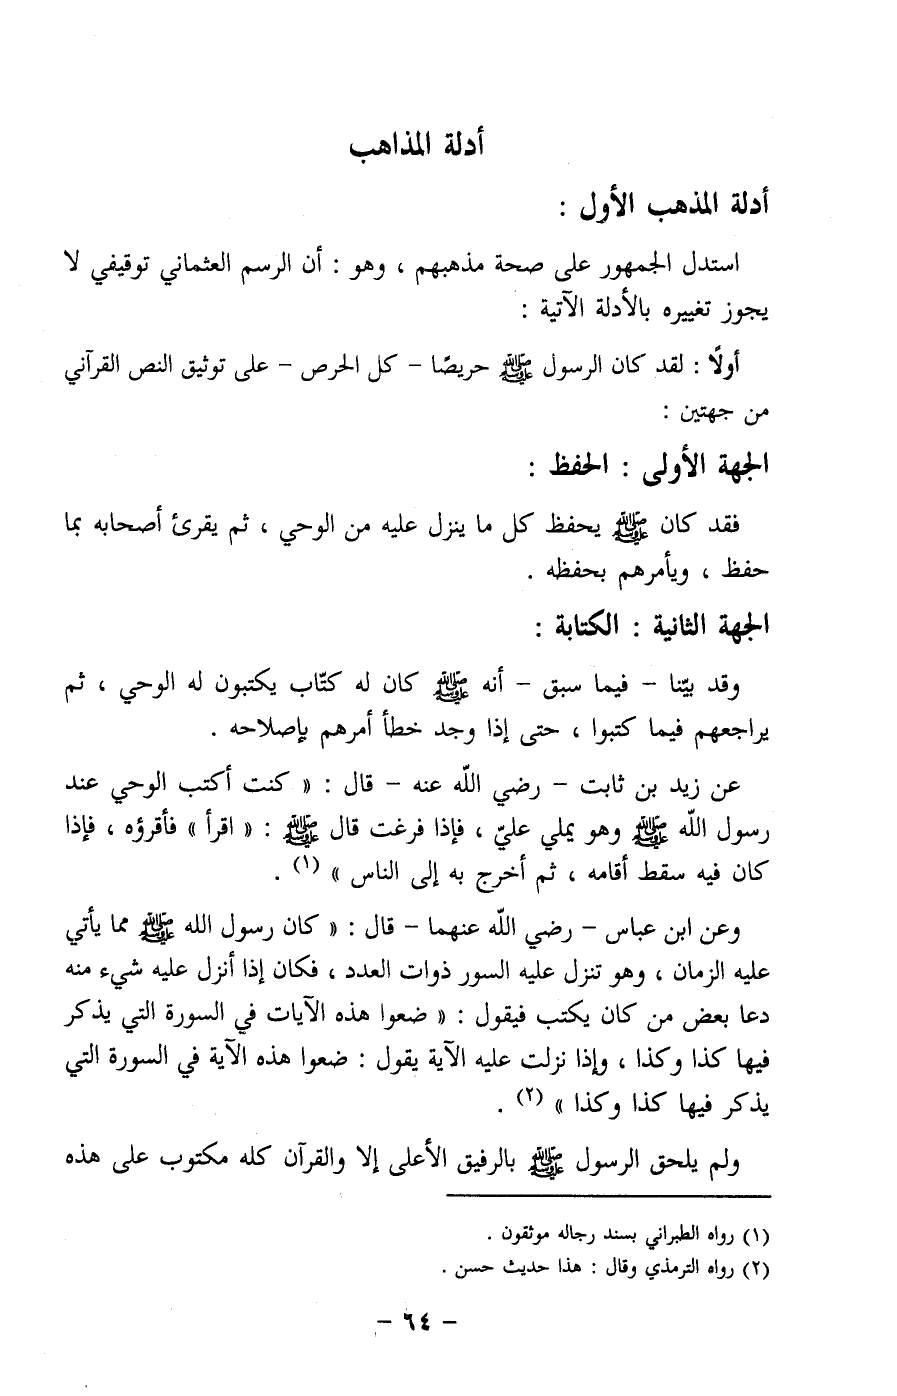 أدلة المذاهب
أدلة المذهب الأول :
استدل الجمهور على صحة مذهبهم ، وهو : أن الرسم العثماني توقيفي لا
يجوز تغييره بالأدلة الآتية :
أولًا : لقد كان الرسول ﷺ حريصًا – كل الحرص – على توثيق النص القرآني
من جهتين :
الجهة الأولى : الحفظ :
فقد كان ﷺ يحفظ كل ما ينزل عليه من الوحي ، ثم يقرئ أصحابه بما
حفظ ، ويأمرهم بحفظه .
الجهة الثانية : الكتابة :
وقد بيّنا – فيما سبق – أنه ﷺ كان له كتّاب يكتبون له الوحي ، ثم
يراجعهم فيما كتبوا ، حتى إذا وجد خطأ أمرهم بإصلاحه .
عن زيد بن ثابت – رضي اللّه عنه – قال : « كنت أكتب الوحي عند
رسول اللّه ﷺ وهو يملي عليّ ، فإذا فرغت قال ﷺ : « اقرأ » فأقرؤه ، فإذا
كان فيه سقط أقامه ، ثم أخرج به إلى الناس » (١) .
وعن ابن عباس – رضي اللّه عنهما – قال : « كان رسول الله ﷺ مما يأتي
عليه الزمان ، وهو تنزل عليه السور ذوات العدد ، فكان إذا أنزل عليه شيء منه
دعا بعض من كان يكتب فيقول : « ضعوا هذه الآيات في السورة التي يذكر
فيها كذا وكذا ، وإذا نزلت عليه الآية يقول : ضعوا هذه الآية في السورة التي
يذكر فيها كذا وكذا » (٢) .
ولم يلحق الرسول ﷺ بالرفيق الأعلى إلا والقرآن كله مكتوب على هذه
(١) رواه الطبراني بسند رجاله موثقون .
(٢) رواه الترمذي وقال : هذا حديث حسن .
– ٦٤ –